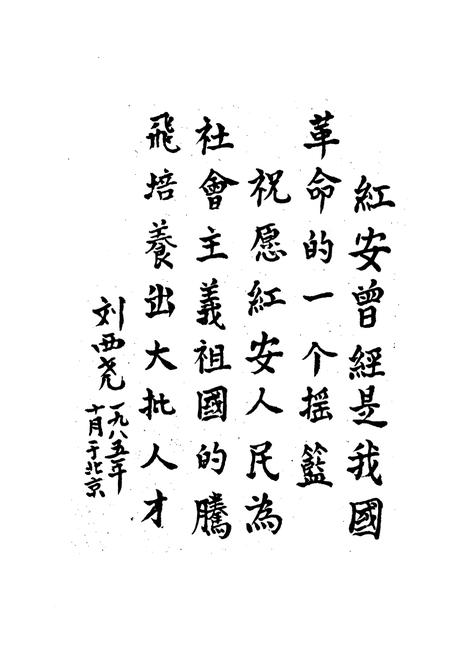 紅安曾經是我國
革命的一个摇籃
祝愿紅安人民為
社會主義祖國的騰
飛培養出大批人才
刘西尧
一九八五年
十月于北京